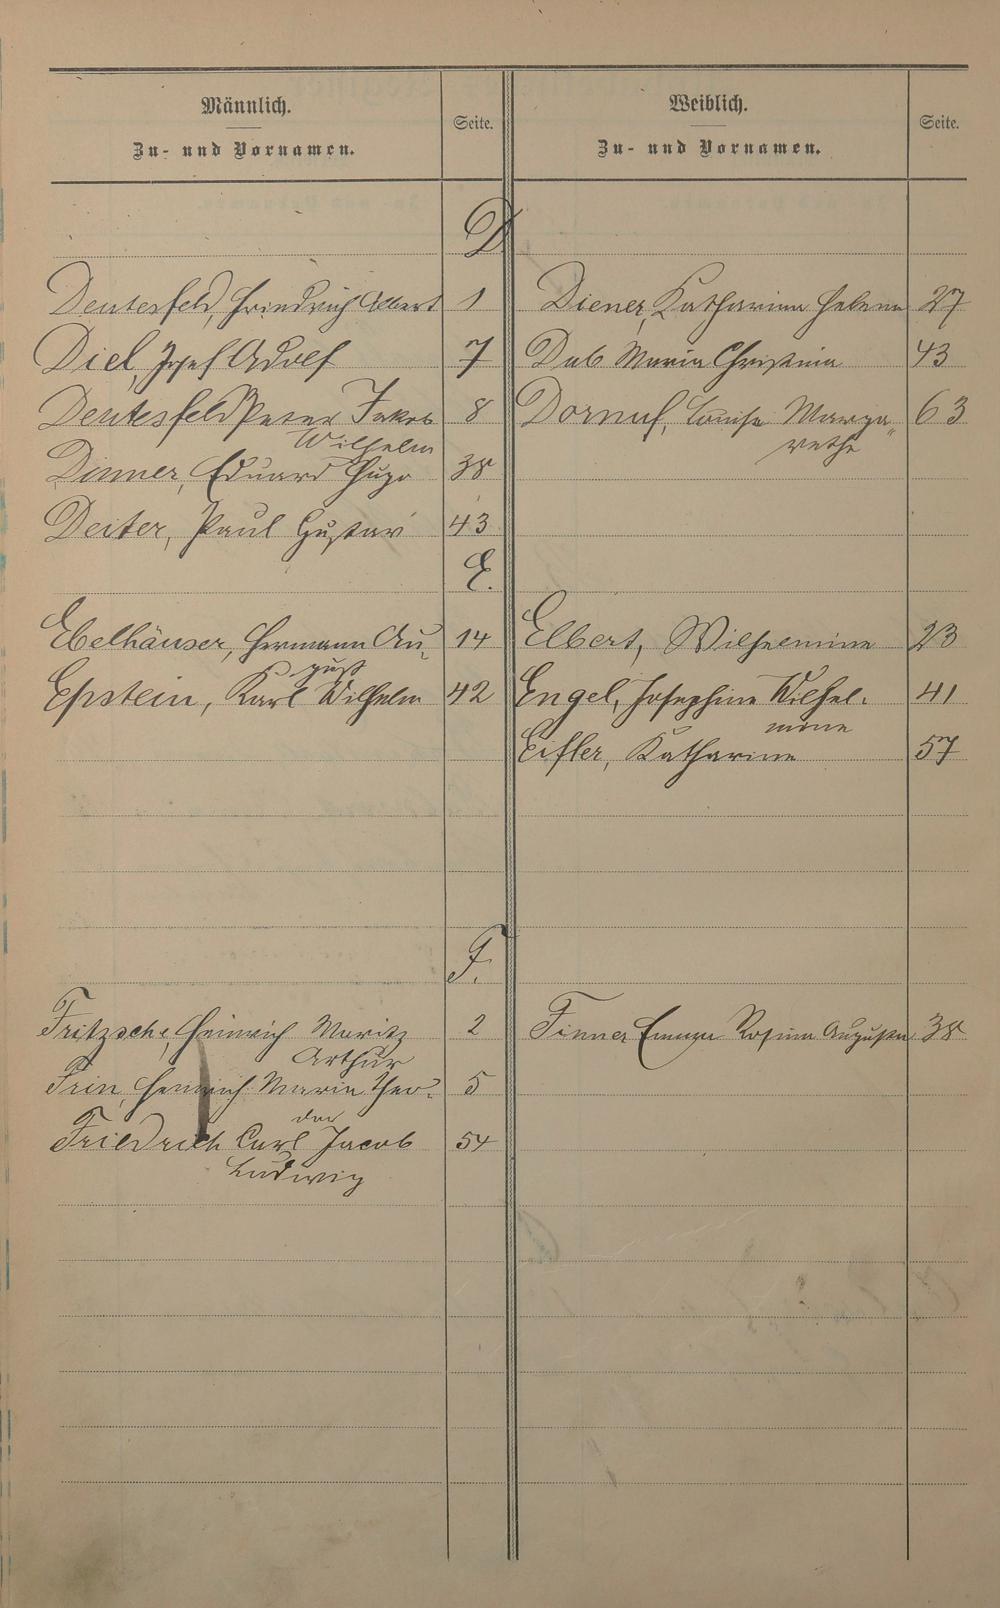 Männlich.
Zu- und Vornamen.
Seite.
Weiblich.
Zu- und Vornamen.
Seite.
D
Deutesfeld, Friedrich Albert 1 Diener, Katharina Helene 27
Diel, Josef Adolf 7 Dab Maria Christina 43
Deutesfeld Peter Jakob 8 Dornuf, Louise Marga„ 63
Wilhelm rethe
Dinner, Eduard Hugo 38
Deiter, Paul Gustav 43
E.
Ebelhäuser, Hermann Au„ 14 Elbert, Wilhelmine 23
gust
Epstein, Karl Wilhelm 42 Engel, Josephine Wilhel- 41
mine
Eifler, Katharina 57
F.
Fritzsche, Heinrich Moritz 2 Finner Emma Rosina Augusta 38
Arthur
Frin, Heinrich Maria Theo- 5
dor
Friedrich Carl Jacob 54
Ludwig